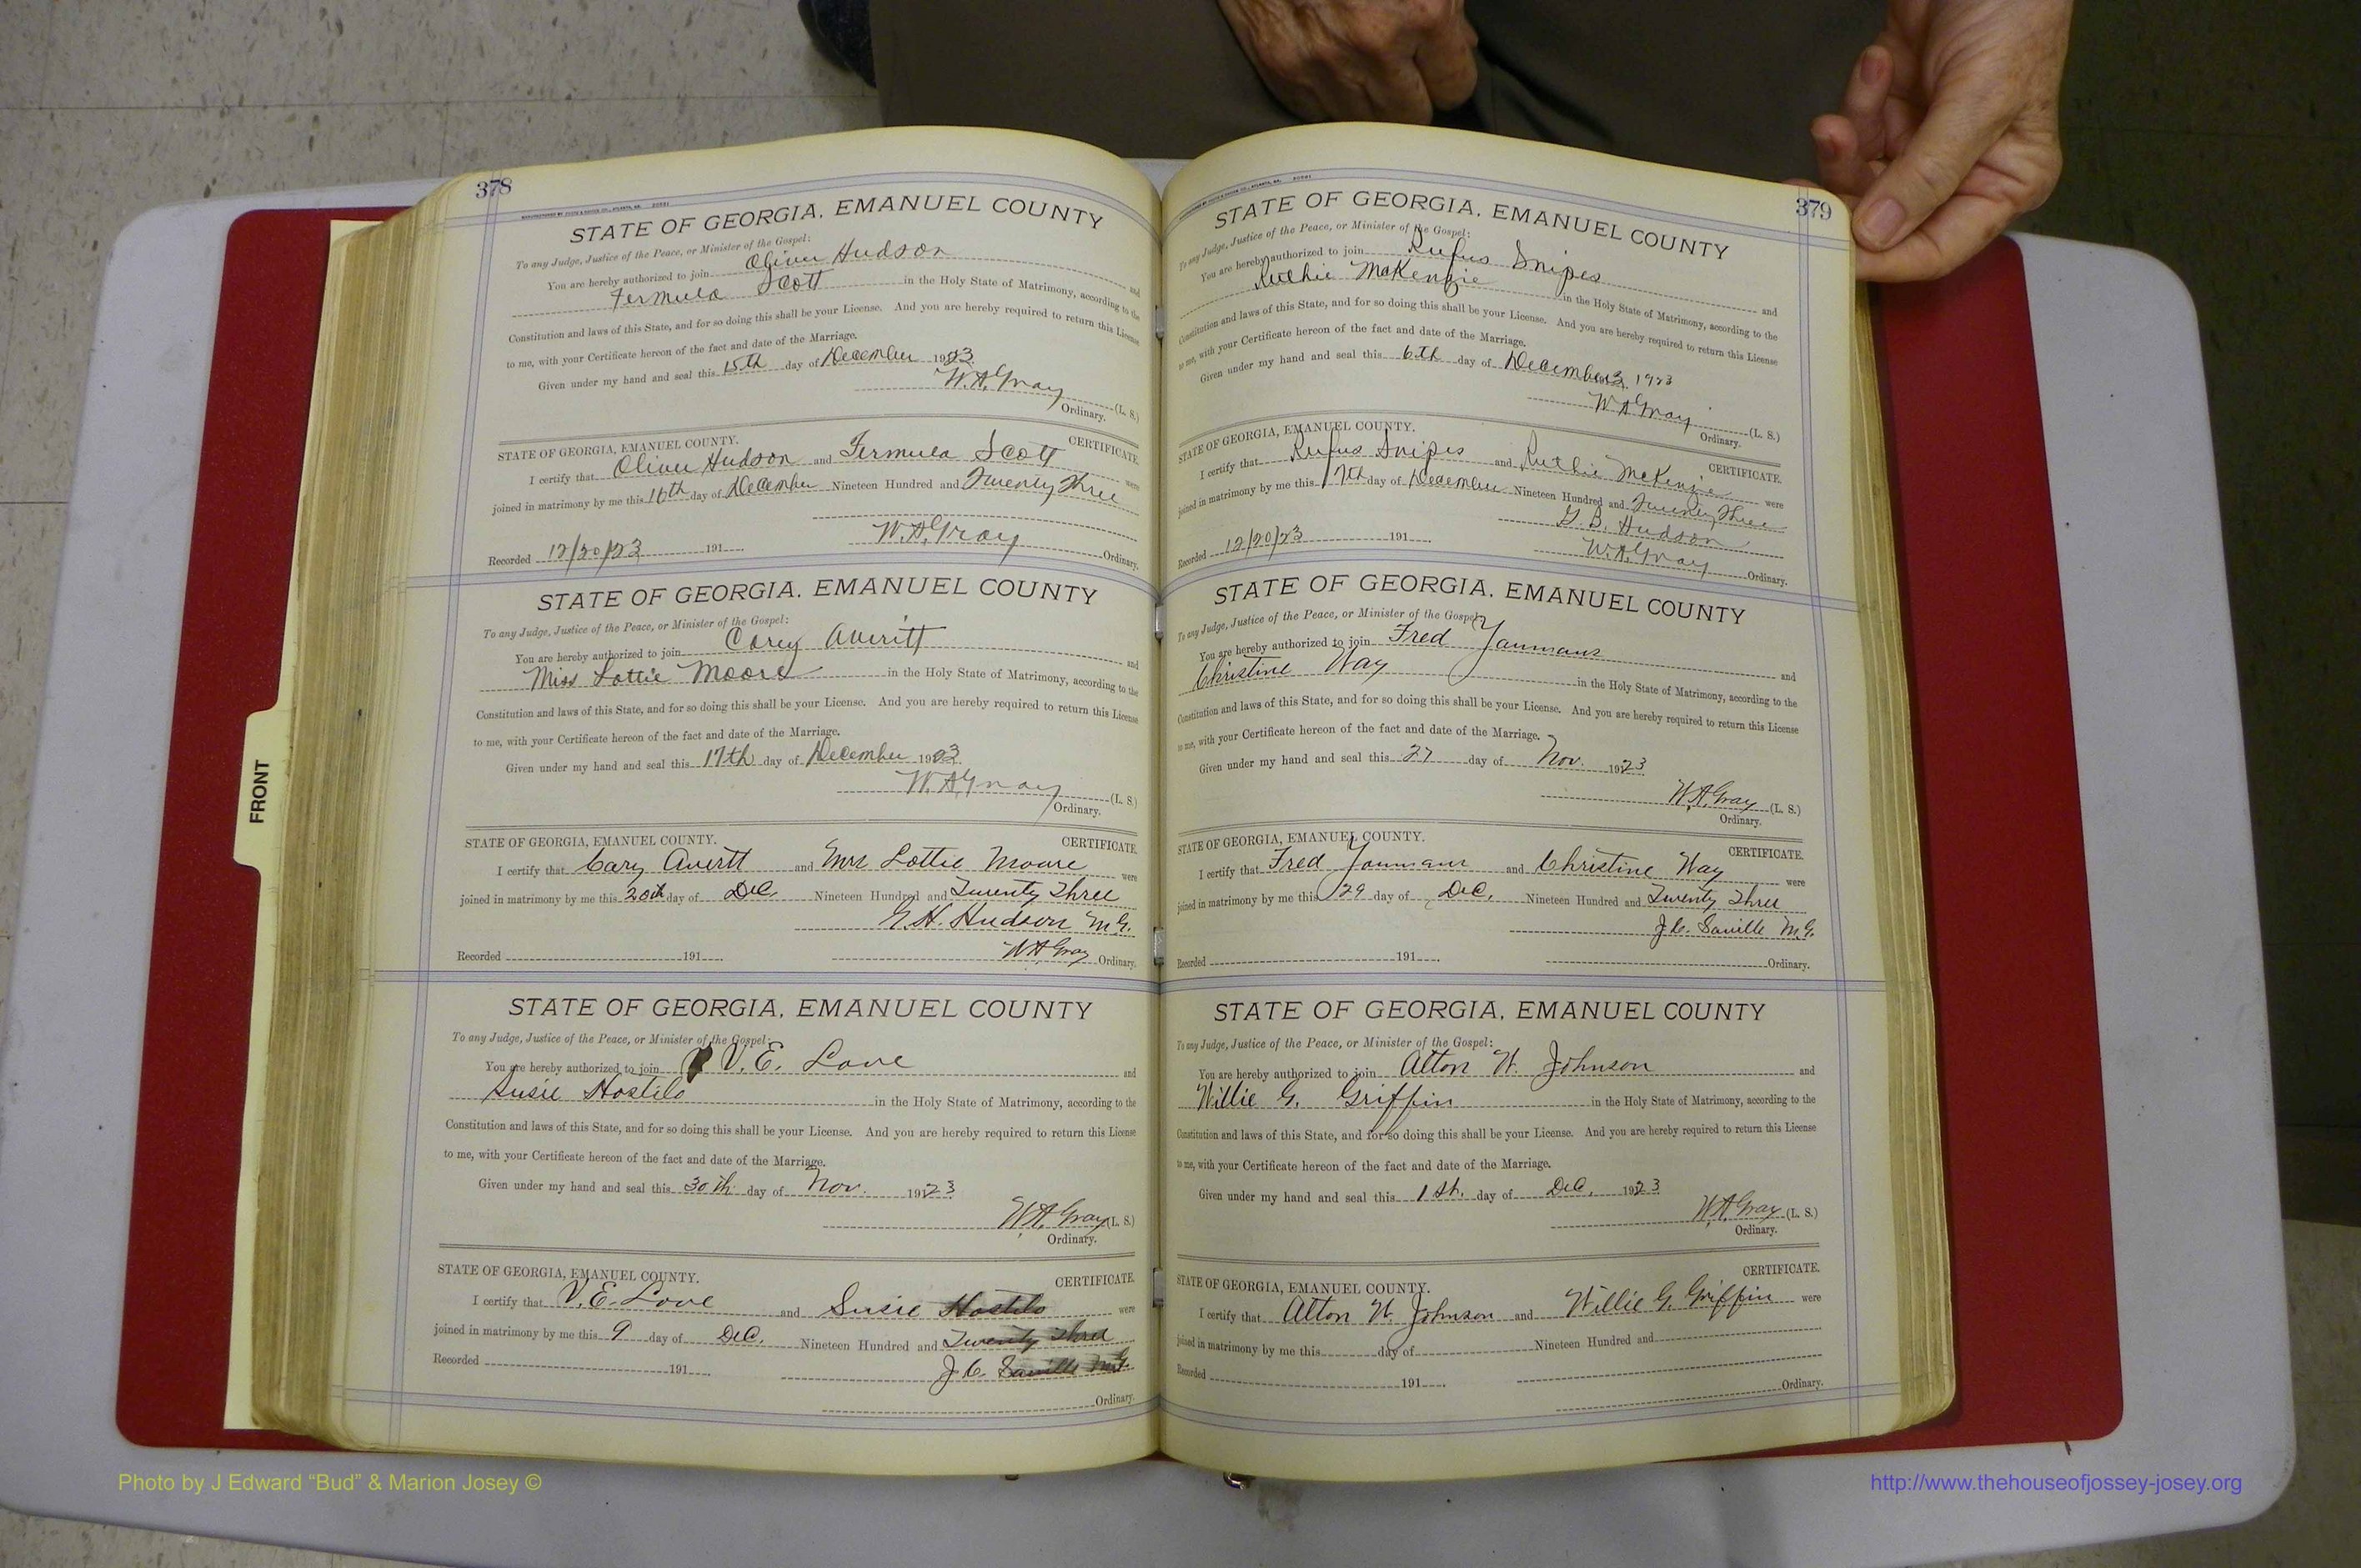 378
STATE OF GEORGIA, EMANUEL COUNTY
To any Judge, Justice of the Peace, or Minister of the Gospel:
You are hereby authorized to join Oliver Hudson and
Fermula Scott in the Holy State of Matrimony, according to the
Constitution and laws of this State, and for so doing this shall be your License. And you are hereby required to return this License
to me, with your Certificate hereon of the fact and date of the Marriage.
Given under my hand and seal this 15th day of December 1923
W.A. Gray (L. S.)
Ordinary.
STATE OF GEORGIA, EMANUEL COUNTY. CERTIFICATE.
I certify that Oliver Hudson and Fermula Scott were
joined in matrimony by me this 16th day of December Nineteen Hundred and Twenty Three
Recorded 12/20/23 191 W.A. Gray Ordinary.
STATE OF GEORGIA, EMANUEL COUNTY
To any Judge, Justice of the Peace, or Minister of the Gospel:
You are hereby authorized to join Corey Averitt and
Miss Lottie Moore in the Holy State of Matrimony, according to the
Constitution and laws of this State, and for so doing this shall be your License. And you are hereby required to return this License
to me, with your Certificate hereon of the fact and date of the Marriage.
Given under my hand and seal this 17th day of December 1923
W.A. Gray (L. S.)
Ordinary.
STATE OF GEORGIA, EMANUEL COUNTY. CERTIFICATE.
I certify that Cary Avertt and Mrs Lottie Moore were
joined in matrimony by me this 20th day of Dec. Nineteen Hundred and Twenty Three
G.H. Hudson M.G.
Recorded 191 W.A. Gray Ordinary.
STATE OF GEORGIA, EMANUEL COUNTY
To any Judge, Justice of the Peace, or Minister of the Gospel:
You are hereby authorized to join V. E. Love and
Susie Hostilo in the Holy State of Matrimony, according to the
Constitution and laws of this State, and for so doing this shall be your License. And you are hereby required to return this License
to me, with your Certificate hereon of the fact and date of the Marriage.
Given under my hand and seal this 30th day of Nov. 1923
W.A. Gray (L. S.)
Ordinary.
STATE OF GEORGIA, EMANUEL COUNTY. CERTIFICATE.
I certify that V. E. Love and Susie Hostilo were
joined in matrimony by me this 9 day of Dec. Nineteen Hundred and Twenty Three
Recorded 191 J.C. Saville M.G.
Ordinary.
379
STATE OF GEORGIA, EMANUEL COUNTY
To any Judge, Justice of the Peace, or Minister of the Gospel:
You are hereby authorized to join Rufus Snipes and
Ruthie McKenzie in the Holy State of Matrimony, according to the
Constitution and laws of this State, and for so doing this shall be your License. And you are hereby required to return this License
to me, with your Certificate hereon of the fact and date of the Marriage.
Given under my hand and seal this 6th day of December 1923
W A Gray (L. S.)
Ordinary.
STATE OF GEORGIA, EMANUEL COUNTY. CERTIFICATE.
I certify that Rufus Snipes and Ruthie McKenzie were
joined in matrimony by me this 7th day of December Nineteen Hundred and Twenty Three
G. B. Hudson
Recorded 12/20/23 191 W.A. Gray Ordinary.
STATE OF GEORGIA, EMANUEL COUNTY
To any Judge, Justice of the Peace, or Minister of the Gospel:
You are hereby authorized to join Fred Youmans and
Christine Way in the Holy State of Matrimony, according to the
Constitution and laws of this State, and for so doing this shall be your License. And you are hereby required to return this License
to me, with your Certificate hereon of the fact and date of the Marriage.
Given under my hand and seal this 27 day of Nov. 1923
W.A. Gray (L. S.)
Ordinary.
STATE OF GEORGIA, EMANUEL COUNTY. CERTIFICATE.
I certify that Fred Youmans and Christine Way were
joined in matrimony by me this 29 day of Dec. Nineteen Hundred and Twenty Three
J.C. Saville M.G.
Recorded 191 Ordinary.
STATE OF GEORGIA, EMANUEL COUNTY
To any Judge, Justice of the Peace, or Minister of the Gospel:
You are hereby authorized to join Alton W. Johnson and
Willie G. Griffin in the Holy State of Matrimony, according to the
Constitution and laws of this State, and for so doing this shall be your License. And you are hereby required to return this License
to me, with your Certificate hereon of the fact and date of the Marriage.
Given under my hand and seal this 1st. day of Dec. 1923
W.A. Gray (L. S.)
Ordinary.
STATE OF GEORGIA, EMANUEL COUNTY. CERTIFICATE.
I certify that Alton W. Johnson and Willie G. Griffin were
joined in matrimony by me this day of Nineteen Hundred and
Recorded 191
Ordinary.
FRONT
Photo by J Edward “Bud” & Marion Josey ©
http://www.thehouseofjossey-josey.org